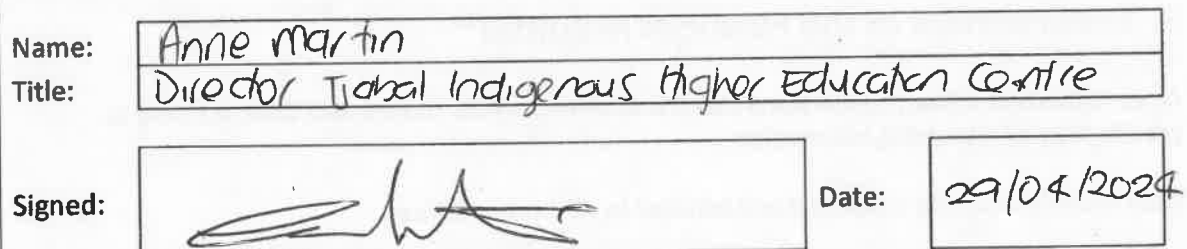 Name: Anne Martin
Title: Director Tjabal Indigenous Higher Education Centre
Signed:
Date: 29/04/2024